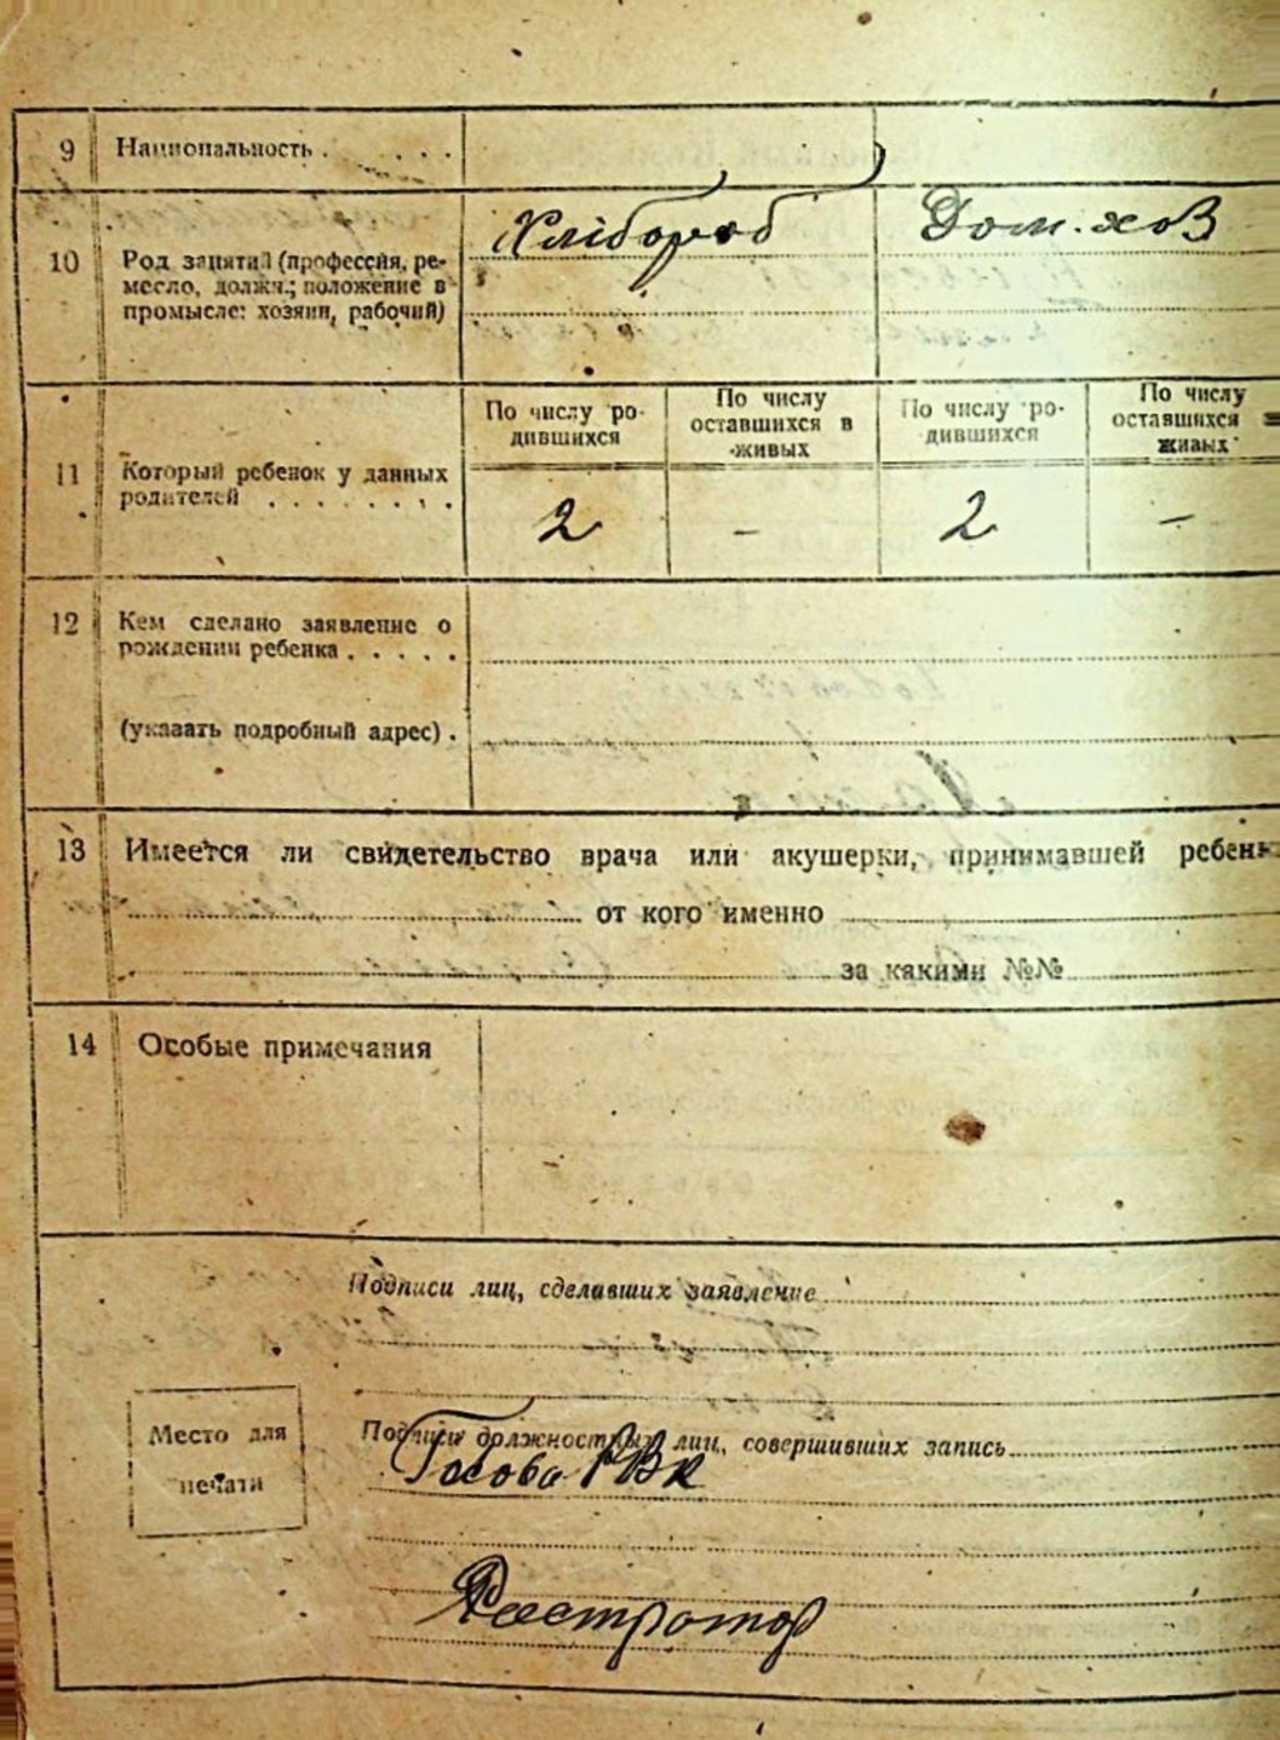 9 Национальность . . . . .
10 Род занятий (профессия, ре-
месло, должн.; положение в
промысле: хозяин, рабочий)
Хлібороб
Дом. хов
11 Который ребенок у данных
родителей . . . . . . . .
По числу ро-
дившихся
По числу
оставшихся в
живых
По числу ро-
дившихся
По числу
оставшихся в
живых
2 - 2 -
12 Кем сделано заявление о
рождении ребенка . . . . .
(указать подробный адрес) .
13 Имеется ли свидетельство врача или акушерки, принимавшей
от кого именно
за какими №№
14 Особые примечания
Подписи лиц, сделавших заявление
Место для
печати
Подписи должностных лиц, совершивших запись
Голова РВК
Реєстратор